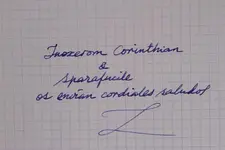 Inoxerom Corinthian
&
Sparafucile
os envían cordiales saludos